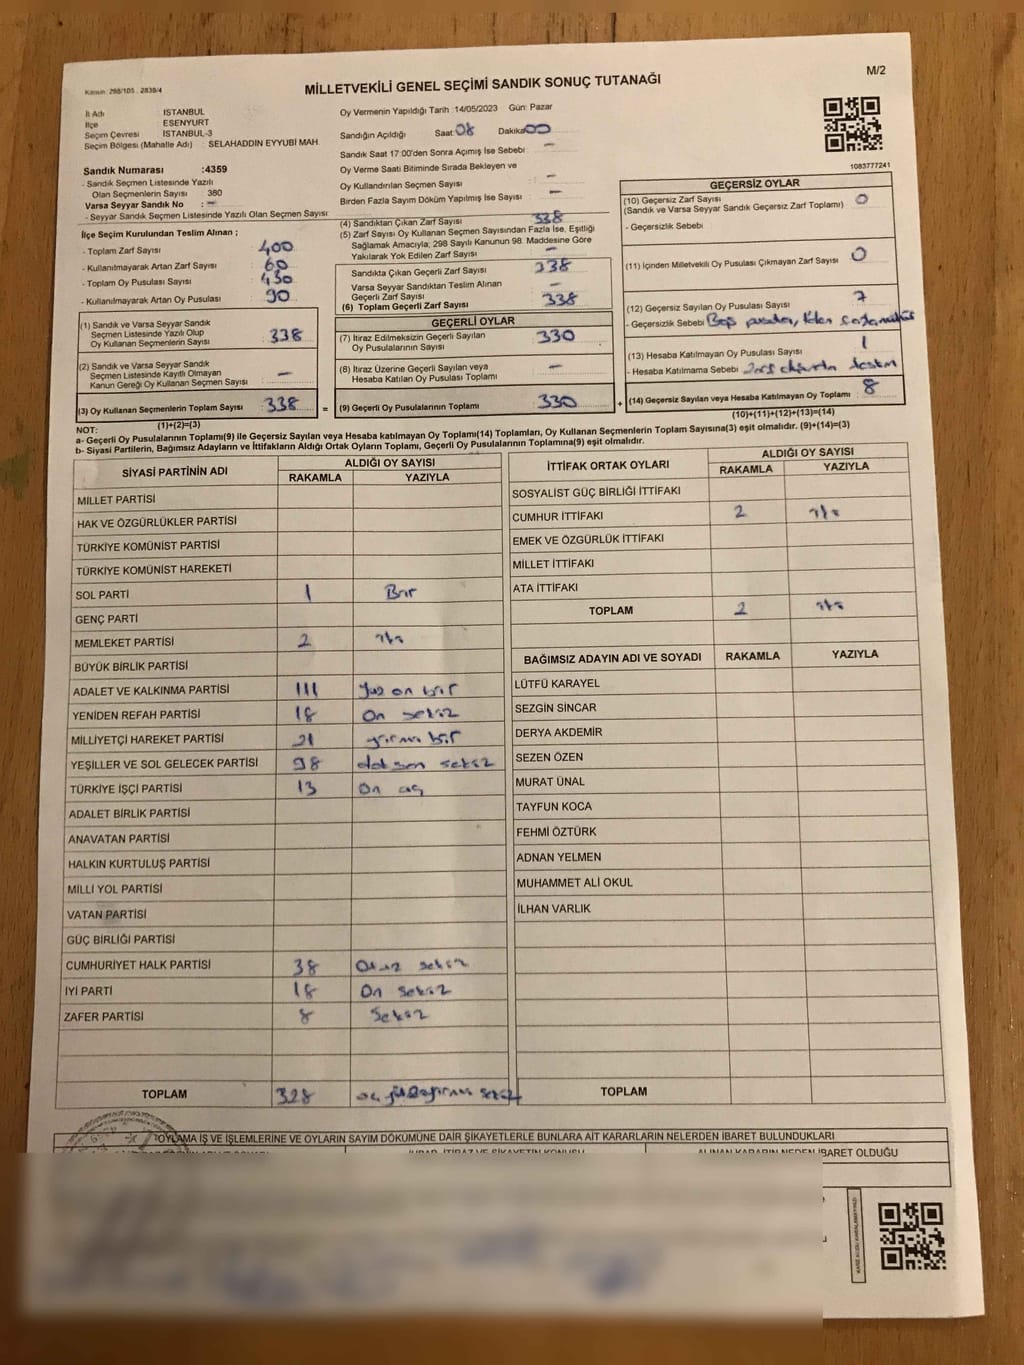 M/2
Kanun: 298/105 . 2839/4
MİLLETVEKİLİ GENEL SEÇİMİ SANDIK SONUÇ TUTANAĞI
İl Adı İSTANBUL
İlçe ESENYURT
Seçim Çevresi İSTANBUL-3
Seçim Bölgesi (Mahalle Adı) : SELAHADDİN EYYUBİ MAH.
Oy Vermenin Yapıldığı Tarih :14/05/2023 Gün: Pazar
Sandığın Açıldığı Saat 08 Dakika 00
Sandık Saat 17:00'den Sonra Açımış İse Sebebi: -
Oy Verme Saati Bitiminde Sırada Bekleyen ve
Oy Kullandırılan Seçmen Sayısı -
Birden Fazla Sayım Döküm Yapılmış İse Sayısı -
1083777241
Sandık Numarası :4359
- Sandık Seçmen Listesinde Yazılı
Olan Seçmenlerin Sayısı : 380
Varsa Seyyar Sandık No : -
- Seyyar Sandık Seçmen Listesinde Yazılı Olan Seçmen Sayısı:
İlçe Seçim Kurulundan Teslim Alınan ;
- Toplam Zarf Sayısı 400
- Kullanılmayarak Artan Zarf Sayısı 60
- Toplam Oy Pusulası Sayısı 430
- Kullanılmayarak Artan Oy Pusulası 90
(1) Sandık ve Varsa Seyyar Sandık
Seçmen Listesinde Yazılı Olup
Oy Kullanan Seçmenlerin Sayısı 338
(2) Sandık ve Varsa Seyyar Sandık
Seçmen Listesinde Kayıtlı Olmayan
Kanun Gereği Oy Kullanan Seçmen Sayısı -
(3) Oy Kullanan Seçmenlerin Toplam Sayısı 338 =
(1)+(2)=(3)
(4) Sandıktan Çıkan Zarf Sayısı 338
(5) Zarf Sayısı Oy Kullanan Seçmen Sayısından Fazla İse, Eşitliği
Sağlamak Amacıyla; 298 Sayılı Kanunun 98. Maddesine Göre
Yakılarak Yok Edilen Zarf Sayısı -
Sandıkta Çıkan Geçerli Zarf Sayısı 338
Varsa Seyyar Sandıktan Teslim Alınan
Geçerli Zarf Sayısı -
(6) Toplam Geçerli Zarf Sayısı 338
GEÇERLİ OYLAR
(7) İtiraz Edilmeksizin Geçerli Sayılan
Oy Pusulalarının Sayısı 330
(8) İtiraz Üzerine Geçerli Sayılan veya
Hesaba Katılan Oy Pusulası Toplamı -
(9) Geçerli Oy Pusulalarının Toplamı 330 +
GEÇERSİZ OYLAR
(10) Geçersiz Zarf Sayısı 0
(Sandık ve Varsa Seyyar Sandık Geçersiz Zarf Toplamı)
- Geçersizlik Sebebi
(11) İçinden Milletvekili Oy Pusulası Çıkmayan Zarf Sayısı 0
(12) Geçersiz Sayılan Oy Pusulası Sayısı 7
- Geçersizlik Sebebi
(13) Hesaba Katılmayan Oy Pusulası Sayısı 1
- Hesaba Katılmama Sebebi
(14) Geçersiz Sayılan veya Hesaba Katılmayan Oy Toplamı 8
(10)+(11)+(12)+(13)=(14)
NOT:
a- Geçerli Oy Pusulalarının Toplamı(9) ile Geçersiz Sayılan veya Hesaba katılmayan Oy Toplamı(14) Toplamları, Oy Kullanan Seçmenlerin Toplam Sayısına(3) eşit olmalıdır. (9)+(14)=(3)
b- Siyasi Partilerin, Bağımsız Adayların ve İttifakların Aldığı Ortak Oyların Toplamı, Geçerli Oy Pusulalarının Toplamına(9) eşit olmalıdır.
SİYASİ PARTİNİN ADI ALDIĞI OY SAYISI
RAKAMLA YAZIYLA
MİLLET PARTİSİ
HAK VE ÖZGÜRLÜKLER PARTİSİ
TÜRKİYE KOMÜNİST PARTİSİ
TÜRKİYE KOMÜNİST HAREKETİ
SOL PARTİ 1 Bir
GENÇ PARTİ
MEMLEKET PARTİSİ 2 iki
BÜYÜK BİRLİK PARTİSİ
ADALET VE KALKINMA PARTİSİ 111 Yüz on bir
YENİDEN REFAH PARTİSİ 18 On sekiz
MİLLİYETÇİ HAREKET PARTİSİ 21 yirmi bir
YEŞİLLER VE SOL GELECEK PARTİSİ 98 doksan sekiz
TÜRKİYE İŞÇİ PARTİSİ 13 On üç
ADALET BİRLİK PARTİSİ
ANAVATAN PARTİSİ
HALKIN KURTULUŞ PARTİSİ
MİLLİ YOL PARTİSİ
VATAN PARTİSİ
GÜÇ BİRLİĞİ PARTİSİ
CUMHURİYET HALK PARTİSİ 38 Otuz sekiz
İYİ PARTİ 18 On sekiz
ZAFER PARTİSİ 8 Sekiz
TOPLAM 328 üç yüz yirmi sekiz
İTTİFAK ORTAK OYLARI ALDIĞI OY SAYISI
RAKAMLA YAZIYLA
SOSYALİST GÜÇ BİRLİĞİ İTTİFAKI
CUMHUR İTTİFAKI 2 iki
EMEK VE ÖZGÜRLÜK İTTİFAKI
MİLLET İTTİFAKI
ATA İTTİFAKI
TOPLAM 2 iki
BAĞIMSIZ ADAYIN ADI VE SOYADI RAKAMLA YAZIYLA
LÜTFÜ KARAYEL
SEZGİN SİNCAR
DERYA AKDEMİR
SEZEN ÖZEN
MURAT ÜNAL
TAYFUN KOCA
FEHMİ ÖZTÜRK
ADNAN YELMEN
MUHAMMET ALİ OKUL
İLHAN VARLIK
TOPLAM
OYLAMA İŞ VE İŞLEMLERİNE VE OYLARIN SAYIM DÖKÜMÜNE DAİR ŞİKAYETLERLE BUNLARA AİT KARARLARIN NELERDEN İBARET BULUNDUKLARI
ALINAN KARARIN NEDEN İBARET OLDUĞU